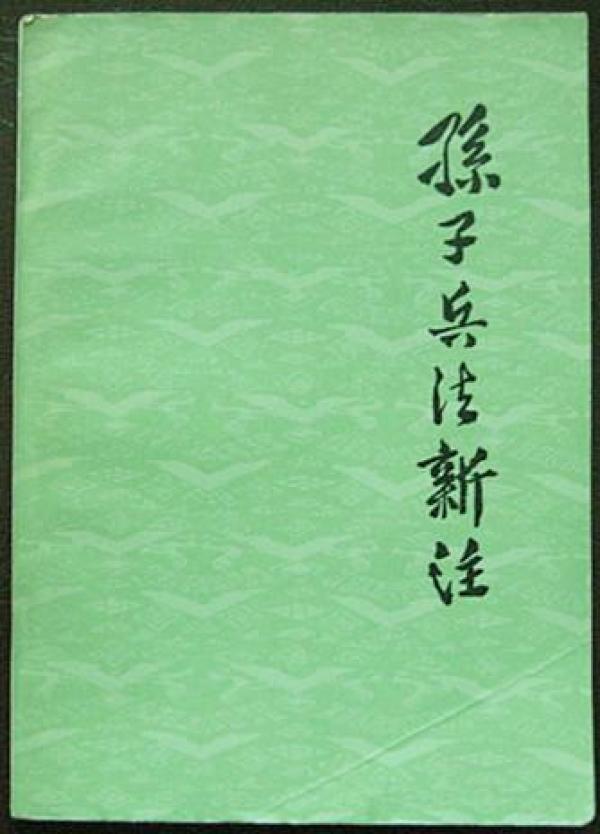 孫子兵法新注